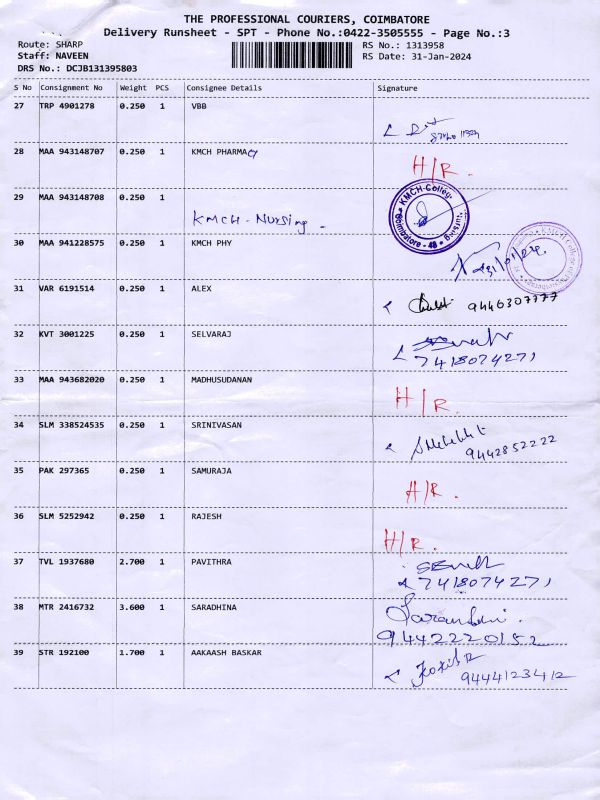 THE PROFESSIONAL COURIERS, COIMBATORE
Delivery Runsheet - SPT - Phone No.:0422-3505555 - Page No.:3
Route: SHARP RS No.: 1313958
Staff: NAVEEN RS Date: 31-Jan-2024
DRS No.: DCJB131395803
S No Consignment No Weight PCS Consignee Details Signature
27 TRP 4901278 0.250 1 VBB
28 MAA 943148707 0.250 1 KMCH PHARMA H/R.
29 MAA 943148708 0.250 1 KMCH - Nursing -
KMCH College Coimbatore - 48
30 MAA 941228575 0.250 1 KMCH PHY 31/01/24
31 VAR 6191514 0.250 1 ALEX 9446307777
32 KVT 3001225 0.250 1 SELVARAJ
7418074271
33 MAA 943682020 0.250 1 MADHUSUDANAN H/R.
34 SLM 338524535 0.250 1 SRINIVASAN
9442852222
35 PAK 297365 0.250 1 SAMURAJA H/R.
36 SLM 5252942 0.250 1 RAJESH H/R.
37 TVL 1937680 2.700 1 PAVITHRA
7418074271
38 MTR 2416732 3.600 1 SARADHINA
9442220152
39 STR 192100 1.700 1 AAKAASH BASKAR
9444123412